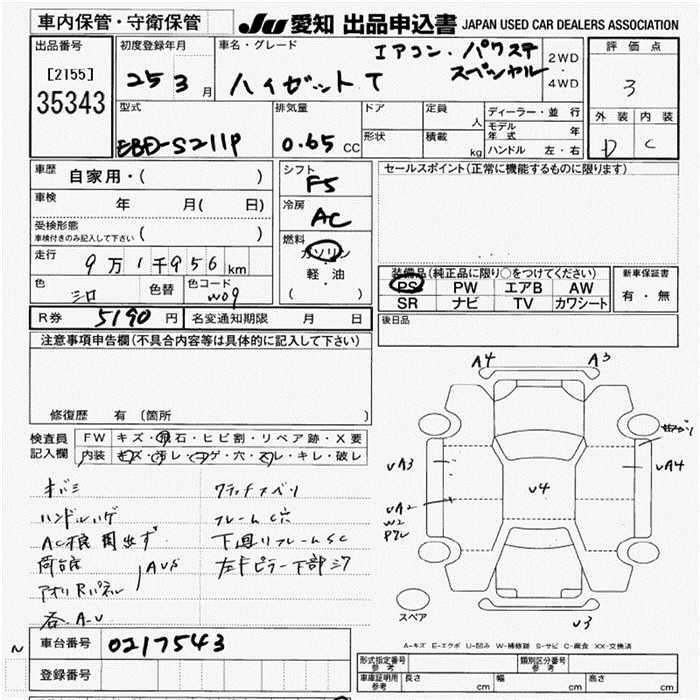 車内保管・守衛保管
JU 愛知 出品申込書 JAPAN USED CAR DEALERS ASSOCIATION
出品番号
[2155]
35343
初度登録年月
25 3 月
車名・グレード
エアコン・パワステ
スペシャル
ハイゼットT
2WD
・
4WD
評価点
3
外装 内装
D C
型式
EBD-S211P
排気量
0.65 CC
ドア
形状
定員
人
積載
kg
ディーラー・並行
モデル年式 年
ハンドル 左・右
車歴
自家用・( )
車検
年 月( 日)
受検形態
車検付きのみ記入して下さい ( )
走行
9万1千956 km
色
シロ
色替
色コード
W09
シフト
F5
冷房
AC
燃料
ガソリン
・
軽油
( )
セールスポイント(正常に機能するものに限ります)
装備品(純正品に限り○をつけてください)
PS PW エアB AW
SR ナビ TV カワシート
新車保証書
有・無
R券 5190 円 名変通知期限 月 日
後日品
注意事項申告欄(不具合内容等は具体的に記入して下さい)
修復歴 有〔箇所 〕
検査員
記入欄
FW キズ・飛石・ヒビ割・リペア跡・X要
内装 キズ・汚レ・コゲ・穴・スレ・キレ・破レ
オバミ
ハンドルハゲ
AC 根 開出ず
荷台底
アオリRパネル
AUS
各A-U
クラッチスベリ
フレームC穴
下廻りフレームSC
左Fピラー下部
A4
A3
UA3
UA2
W2
U4
UA4
U3
スペア
A-キズ E-エクボ U-凹み W-補修跡 S-サビ C-腐食 XX-交換済
車台番号 0217543
登録番号
形式指定番号
参考
類別区分番号
参考
車庫証明用
参考
長さ cm 幅 cm 高さ cm